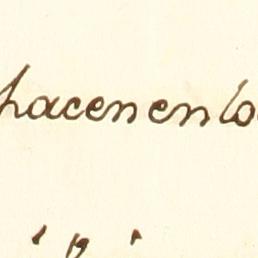 hacen en lo